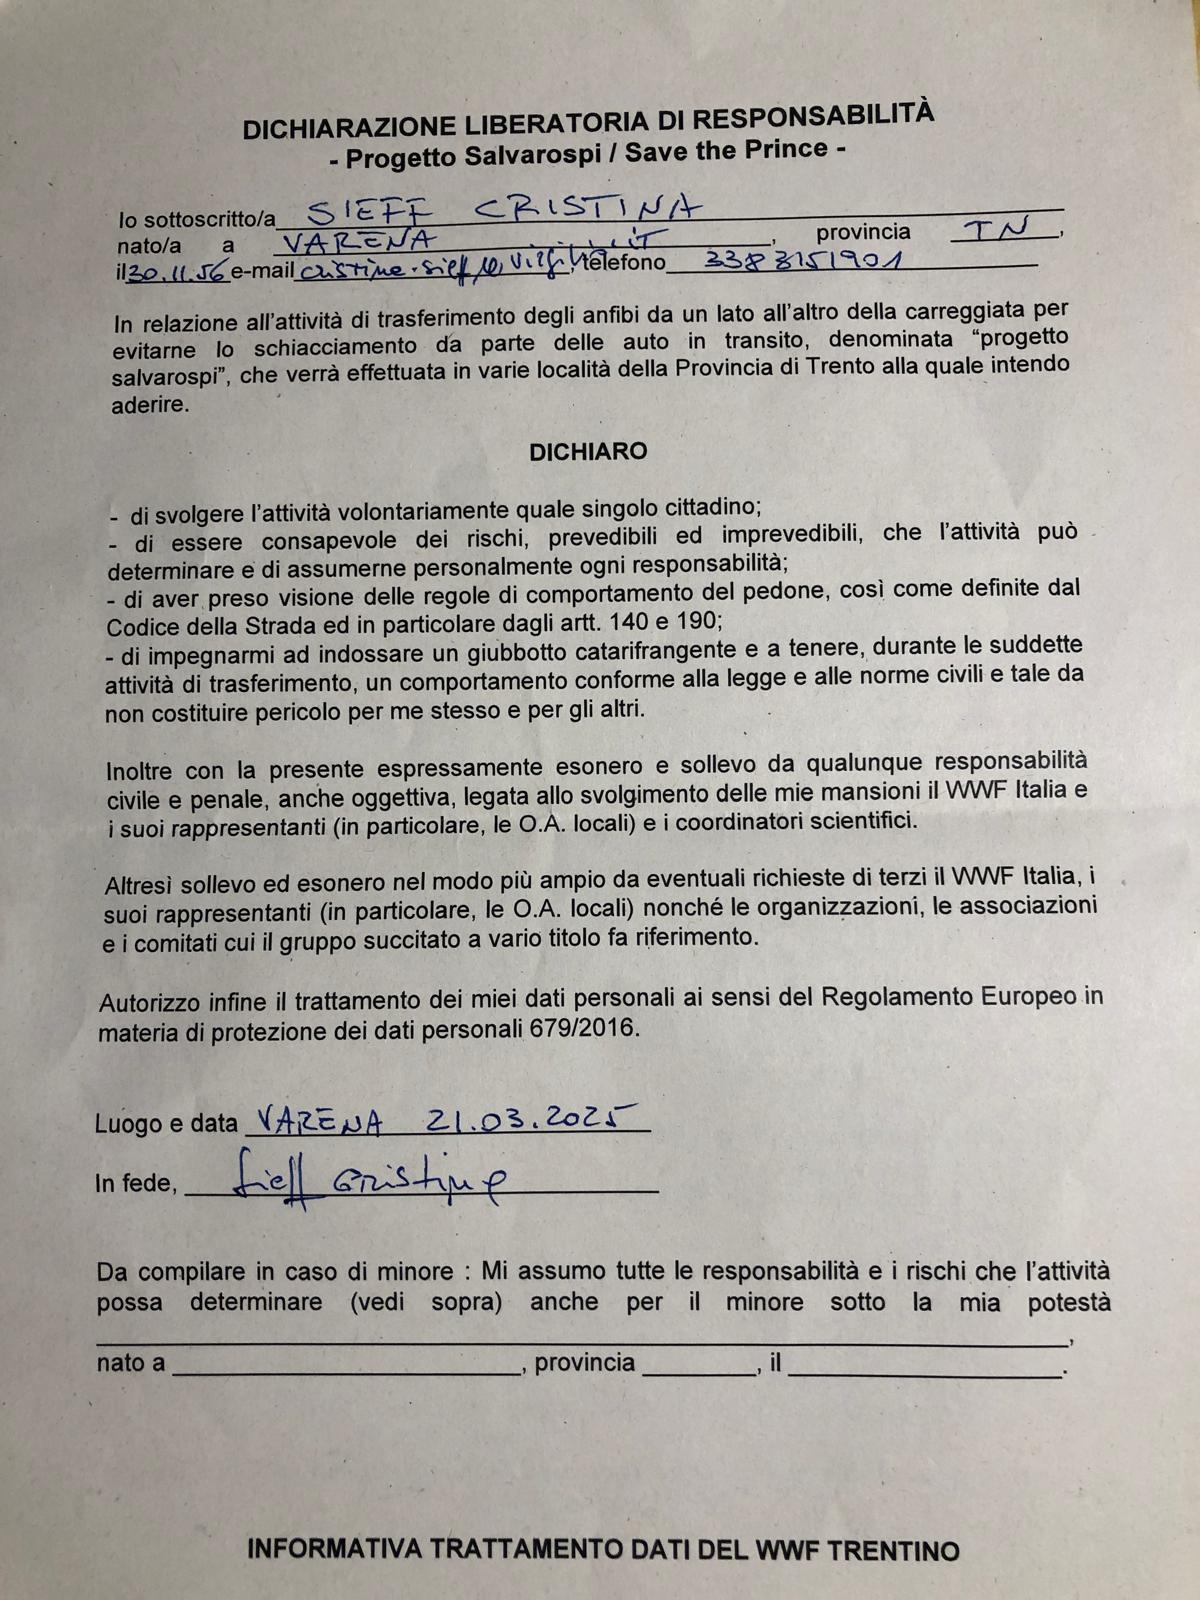 DICHIARAZIONE LIBERATORIA DI RESPONSABILITÀ
- Progetto Salvarospi / Save the Prince -
Io sottoscritto/a SIEFF CRISTINA
nato/a a VARENA, provincia TN,
il 30.11.56 e-mail telefono
In relazione all'attività di trasferimento degli anfibi da un lato all'altro della carreggiata per
evitarne lo schiacciamento da parte delle auto in transito, denominata “progetto
salvarospi”, che verrà effettuata in varie località della Provincia di Trento alla quale intendo
aderire.
DICHIARO
- di svolgere l'attività volontariamente quale singolo cittadino;
- di essere consapevole dei rischi, prevedibili ed imprevedibili, che l'attività può
determinare e di assumerne personalmente ogni responsabilità;
- di aver preso visione delle regole di comportamento del pedone, così come definite dal
Codice della Strada ed in particolare dagli artt. 140 e 190;
- di impegnarmi ad indossare un giubbotto catarifrangente e a tenere, durante le suddette
attività di trasferimento, un comportamento conforme alla legge e alle norme civili e tale da
non costituire pericolo per me stesso e per gli altri.
Inoltre con la presente espressamente esonero e sollevo da qualunque responsabilità
civile e penale, anche oggettiva, legata allo svolgimento delle mie mansioni il WWF Italia e
i suoi rappresentanti (in particolare, le O.A. locali) e i coordinatori scientifici.
Altresì sollevo ed esonero nel modo più ampio da eventuali richieste di terzi il WWF Italia, i
suoi rappresentanti (in particolare, le O.A. locali) nonché le organizzazioni, le associazioni
e i comitati cui il gruppo succitato a vario titolo fa riferimento.
Autorizzo infine il trattamento dei miei dati personali ai sensi del Regolamento Europeo in
materia di protezione dei dati personali 679/2016.
Luogo e data VARENA 21.03.2025
In fede, Sieff Cristina
Da compilare in caso di minore : Mi assumo tutte le responsabilità e i rischi che l'attività
possa determinare (vedi sopra) anche per il minore sotto la mia potestà
,
nato a , provincia , il .
INFORMATIVA TRATTAMENTO DATI DEL WWF TRENTINO